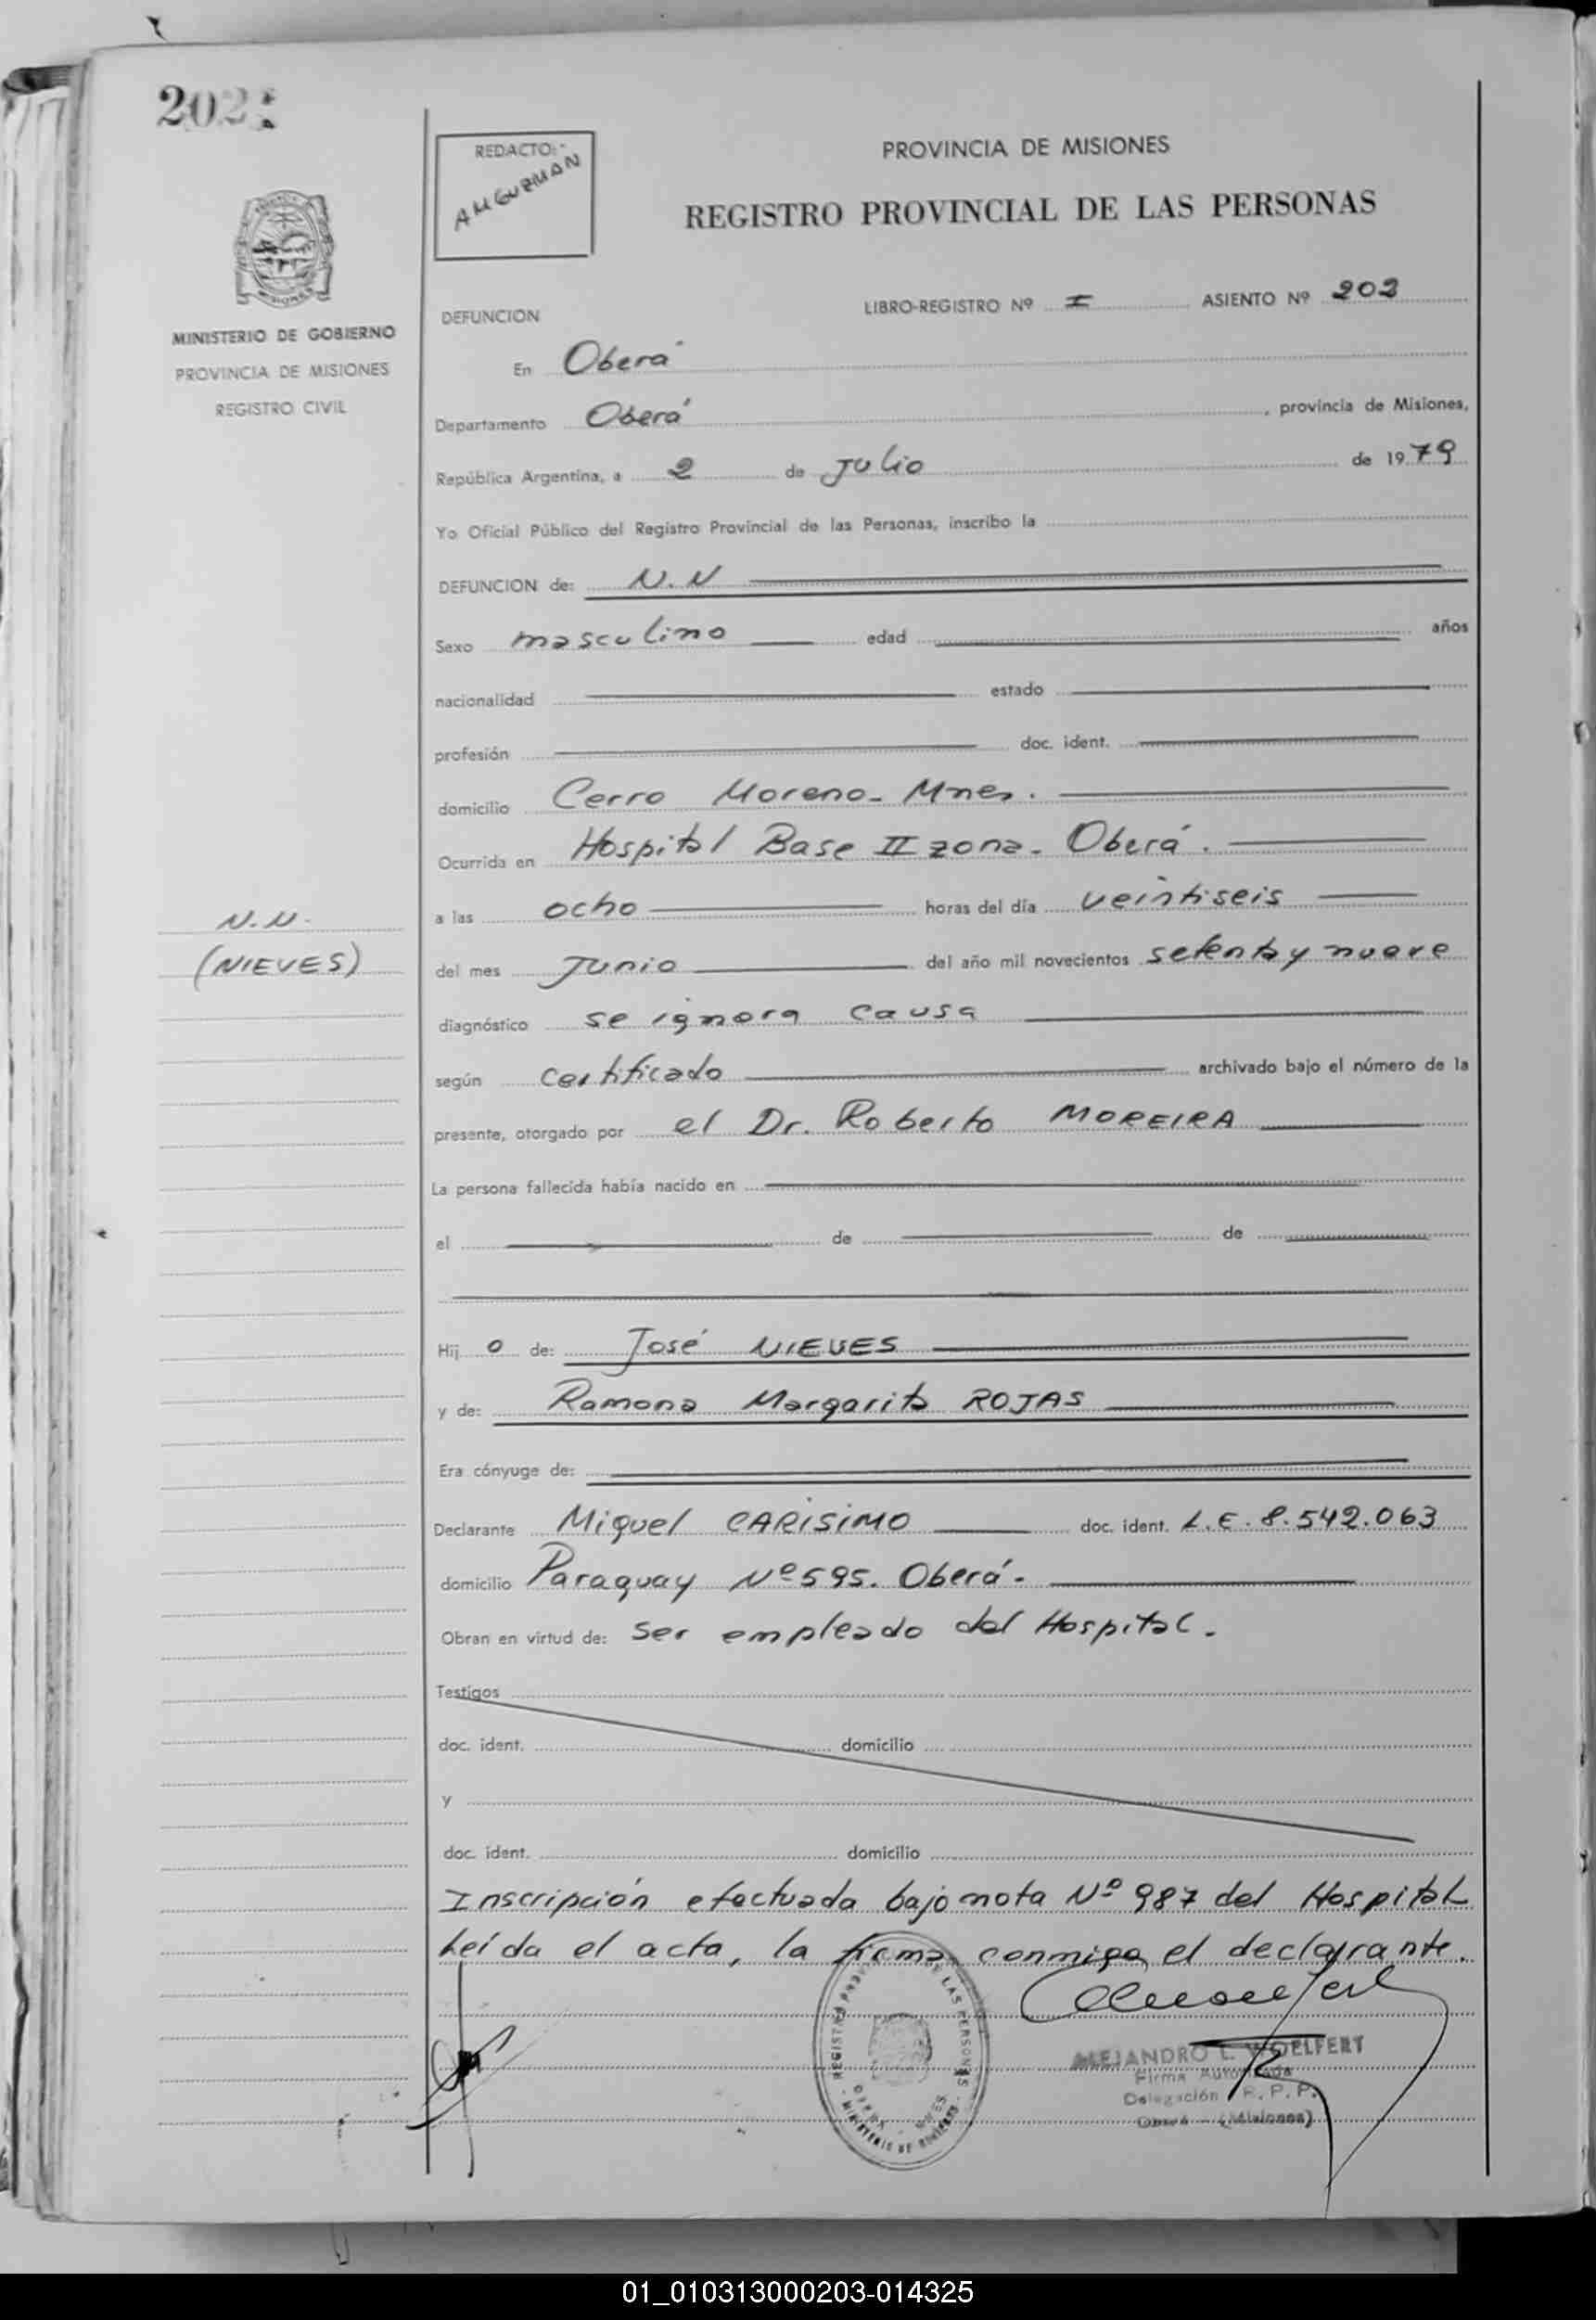 202
REDACTO:-
PROVINCIA DE MISIONES
REGISTRO PROVINCIAL DE LAS PERSONAS
MISIONES
MINISTERIO DE GOBIERNO
PROVINCIA DE MISIONES
REGISTRO CIVIL
DEFUNCION
LIBRO-REGISTRO Nº I ASIENTO Nº 203
En Oberá
Departamento Oberá, provincia de Misiones,
República Argentina, a 2 de Julio de 1979
Yo Oficial Público del Registro Provincial de las Personas, inscribo la
DEFUNCION de: N.N
Sexo masculino edad años
nacionalidad estado
profesión doc. ident.
domicilio Cerro Moreno - Mnes.
Ocurrida en Hospital Base II zona - Oberá.
a las ocho horas del día veintiseis
N.N.
(NIEVES)
del mes Junio del año mil novecientos setenta y nueve
diagnóstico se ignora causa
según certificado archivado bajo el número de la
presente, otorgado por el Dr. Roberto MOREIRA
La persona fallecida había nacido en
el de de
Hij o de: José NIEVES
y de: Ramona Margarita ROJAS
Era cónyuge de:
Declarante Miguel CARISIMO doc. ident. L.E. 8.542.063
domicilio Paraguay Nº 595. Oberá -
Obran en virtud de: ser empleado del Hospital.
Testigos
doc. ident. domicilio
y
doc. ident. domicilio
Inscripción efectuada bajo nota Nº 987 del Hospital
Leída el acta, la firma conmigo el declarante.
REGISTRO PROV. DE LAS PERSONAS
MINISTERIO DE GOBIERNO
ALEJANDRO L. WOELFERT
Firma Autorizada
Delegación R. P. P.
Oberá - (Misiones)
01_010313000203-014325